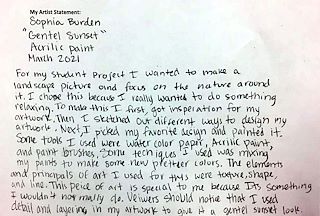 My Artist Statement:
Sophia Burden
"Gentel Sunset"
Acrilic paint
March 2021
For my student project I wanted to make a
landscape picture and focus on the nature around
it. I chose this because I really wanted to do something
relaxing. To make this I first, got insperation for my
artwork. Then I sketched out different ways to design my
artwork. Next, I picked my favorite design and painted it.
Some tools I used were water color paper, Acrilic paint,
and paint brushes. Some techniques I used was mixing
my paints to make some new prettier colors. The elements
and principals of art I used for this were texture, shape,
and line. This peice of art is special to me because Its something
I wouldn't normally do. Veiwers should notice that I used
detail and layering in my artwork to give it a gentel sunset look.